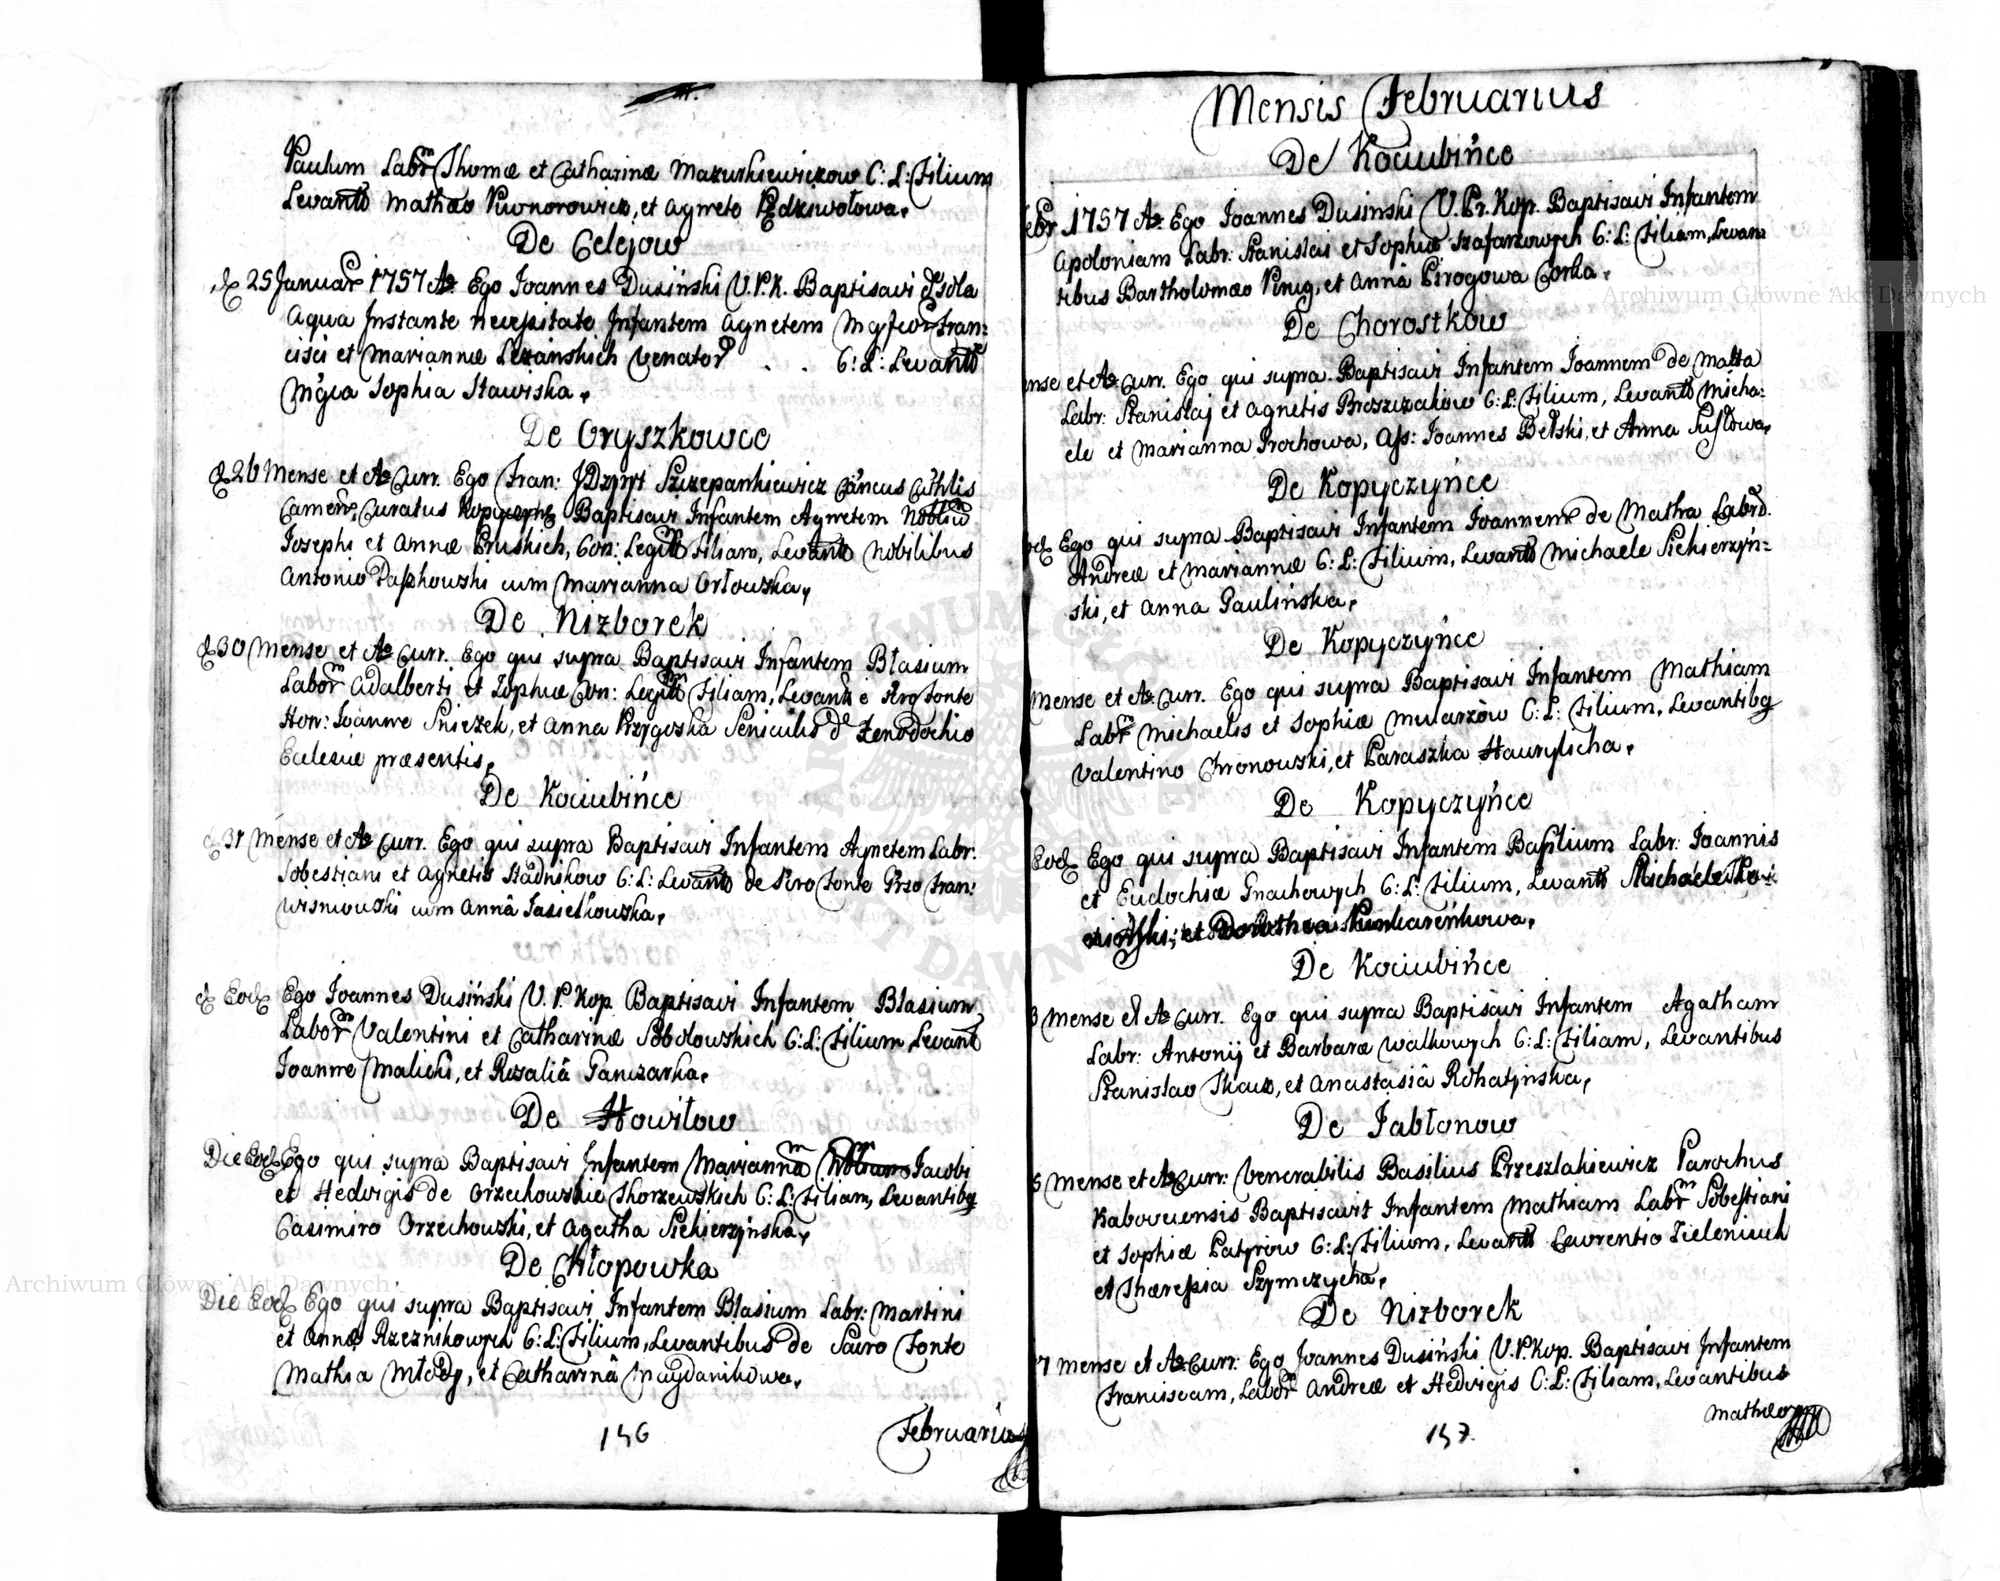 Paulum Labrm Thomæ et Catharinæ Mazurkiewiczow C: L: Filium
Levantb Mathæo Piwnorowicz, et Agneta
De Celejow
25 Januar 1757 Ao Ego Joannes Dusiński V.P.K. Baptisavi Sola
Aqua Instante necessitate Infantem Agnetem Mgfcor Fran=
cisci et Mariannæ Lezanskich Venator . . C: L: Levantb
Mgca Sophia Stawiska.
De Oryszkowce
26 Mense et Ao Curr. Ego Fran: Szczepankiewicz
Camen, Curatus Baptisavi Infantem Agnetem Nobliu
Josephi et Annæ Pruskich, Con: Legitt Filiam, Levantb Nobilibus
Antonio Paszkowski cum Marianna Orłowska,
De Nizborek
30 Mense et Ao Curr. Ego qui supra Baptisavi Infantem Blasium
Laborm Adalberti et Zophiæ Con: Legitt Filiam, Levantb e Sro Fonte
Hon: Joanne Sniezek, et Anna Przygoska de Xenodochio
Eclesiæ præsentis,
De Kociubińce
31 Mense et Ao Curr. Ego qui supra Baptisavi Infantem Agnetem Labr.
Sobestiani et Agnetis Stadnikow C: L: Levantb de Sro Fonte Fran:
Wisniowski cum Annâ Jasielkowska,
Eod Ego Joannes Dusiński V.P.Kop. Baptisavi Infantem Blasium
Laborm Valentini et Catharinæ Sobolowskich C: L: Filium, Levant
Joanne Malicki, et Rozaliâ Ganczarka,
De Howiłow
Die Eod Ego qui supra Baptisavi Infantem Mariannam Jacobi
et Hedvigis de Orzechowskie Skorzewskich C: L: Filiam, Levantibq
Casimiro Orzechowski, et Agatha Siekierzynska,
De Chłopowka
Die Eod Ego qui supra Baptisavi Infantem Blasium Labr: Martini
et Annæ Rzeznikowych C: L: Filium, Levantibus de Sacro Fonte
Mathia Młody, et Catharinâ Magdanikowa,
156
Februarius
Mensis Februarius
De Kociubińce
Febr 1757 Ao Ego Joannes Dusinski V.Pr.Kop. Baptisavi Infantem
Apoloniam Labr: Stanislai et Sophiæ Szafarzowych C: L: Filiam, Levan
tibus Bartholomæo Pinig, et Anna Pirogowa Corka,
De Chorostkow
Mense et Ao Curr. Ego qui supra Baptisavi Infantem Joannem de Matta
Labr: Stanislaj et Agnetis Broszczakow C: L: Filium, Levantb Micha:
ele et Marianna Prochowa, Ass: Joannes Belski, et Anna
De Kopyczyńce
Eod Ego qui supra Baptisavi Infantem Joannem de Matha Labrô.
Andreæ et Mariannæ C: L: Filium, Levantb Michaele Siekierzyń=
ski, et Anna Paulińska,
De Kopyczyńce
Mense et Ao Curr. Ego qui supra Baptisavi Infantem Mathiam
Labrm Michaelis et Sophiæ Mularzow C: L: Filium, Levantibq
Valentino Chronowski, et Paraszka Hawrylicha,
De Kopyczyńce
Eod Ego qui supra Baptisavi Infantem Basilium Labr: Joannis
et Eudochiæ Gnachowych C: L: Filium, Levantb Michaele
et Dorothea
De Kociubińce
3 Mense et Ao Curr. Ego qui supra Baptisavi Infantem Agatham
Labr: Antonij et Barbaræ Walkowych C: L: Filiam, Levantibus
Stanislao Tkacz, et Anastasiâ Rohatynska,
De Jabłonow
5 Mense et Ao Curr: Venerabilis Basilius Przeszlakiewicz Parochus
Kabovciensis Baptisavit Infantem Mathiam Labrm Sobestiani
et Sophiæ Patyrow C: L: Filium, Levantb Lawrentio Zieleniuch
et Theressia Szymczycha,
De Nizborek
7 Mense et Ao Curr: Ego Joannes Dusiński V.P.Kop. Baptisavi Infantem
Franciscam, Laborm Andreæ et Hedvigis C: L: Filiam, Levantibus
Mathæo
157.
Archiwum Główne Akt Dawnych
Archiwum Główne Akt Dawnych
ARCHIWUM GŁÓWNE AKT DAWNYCH